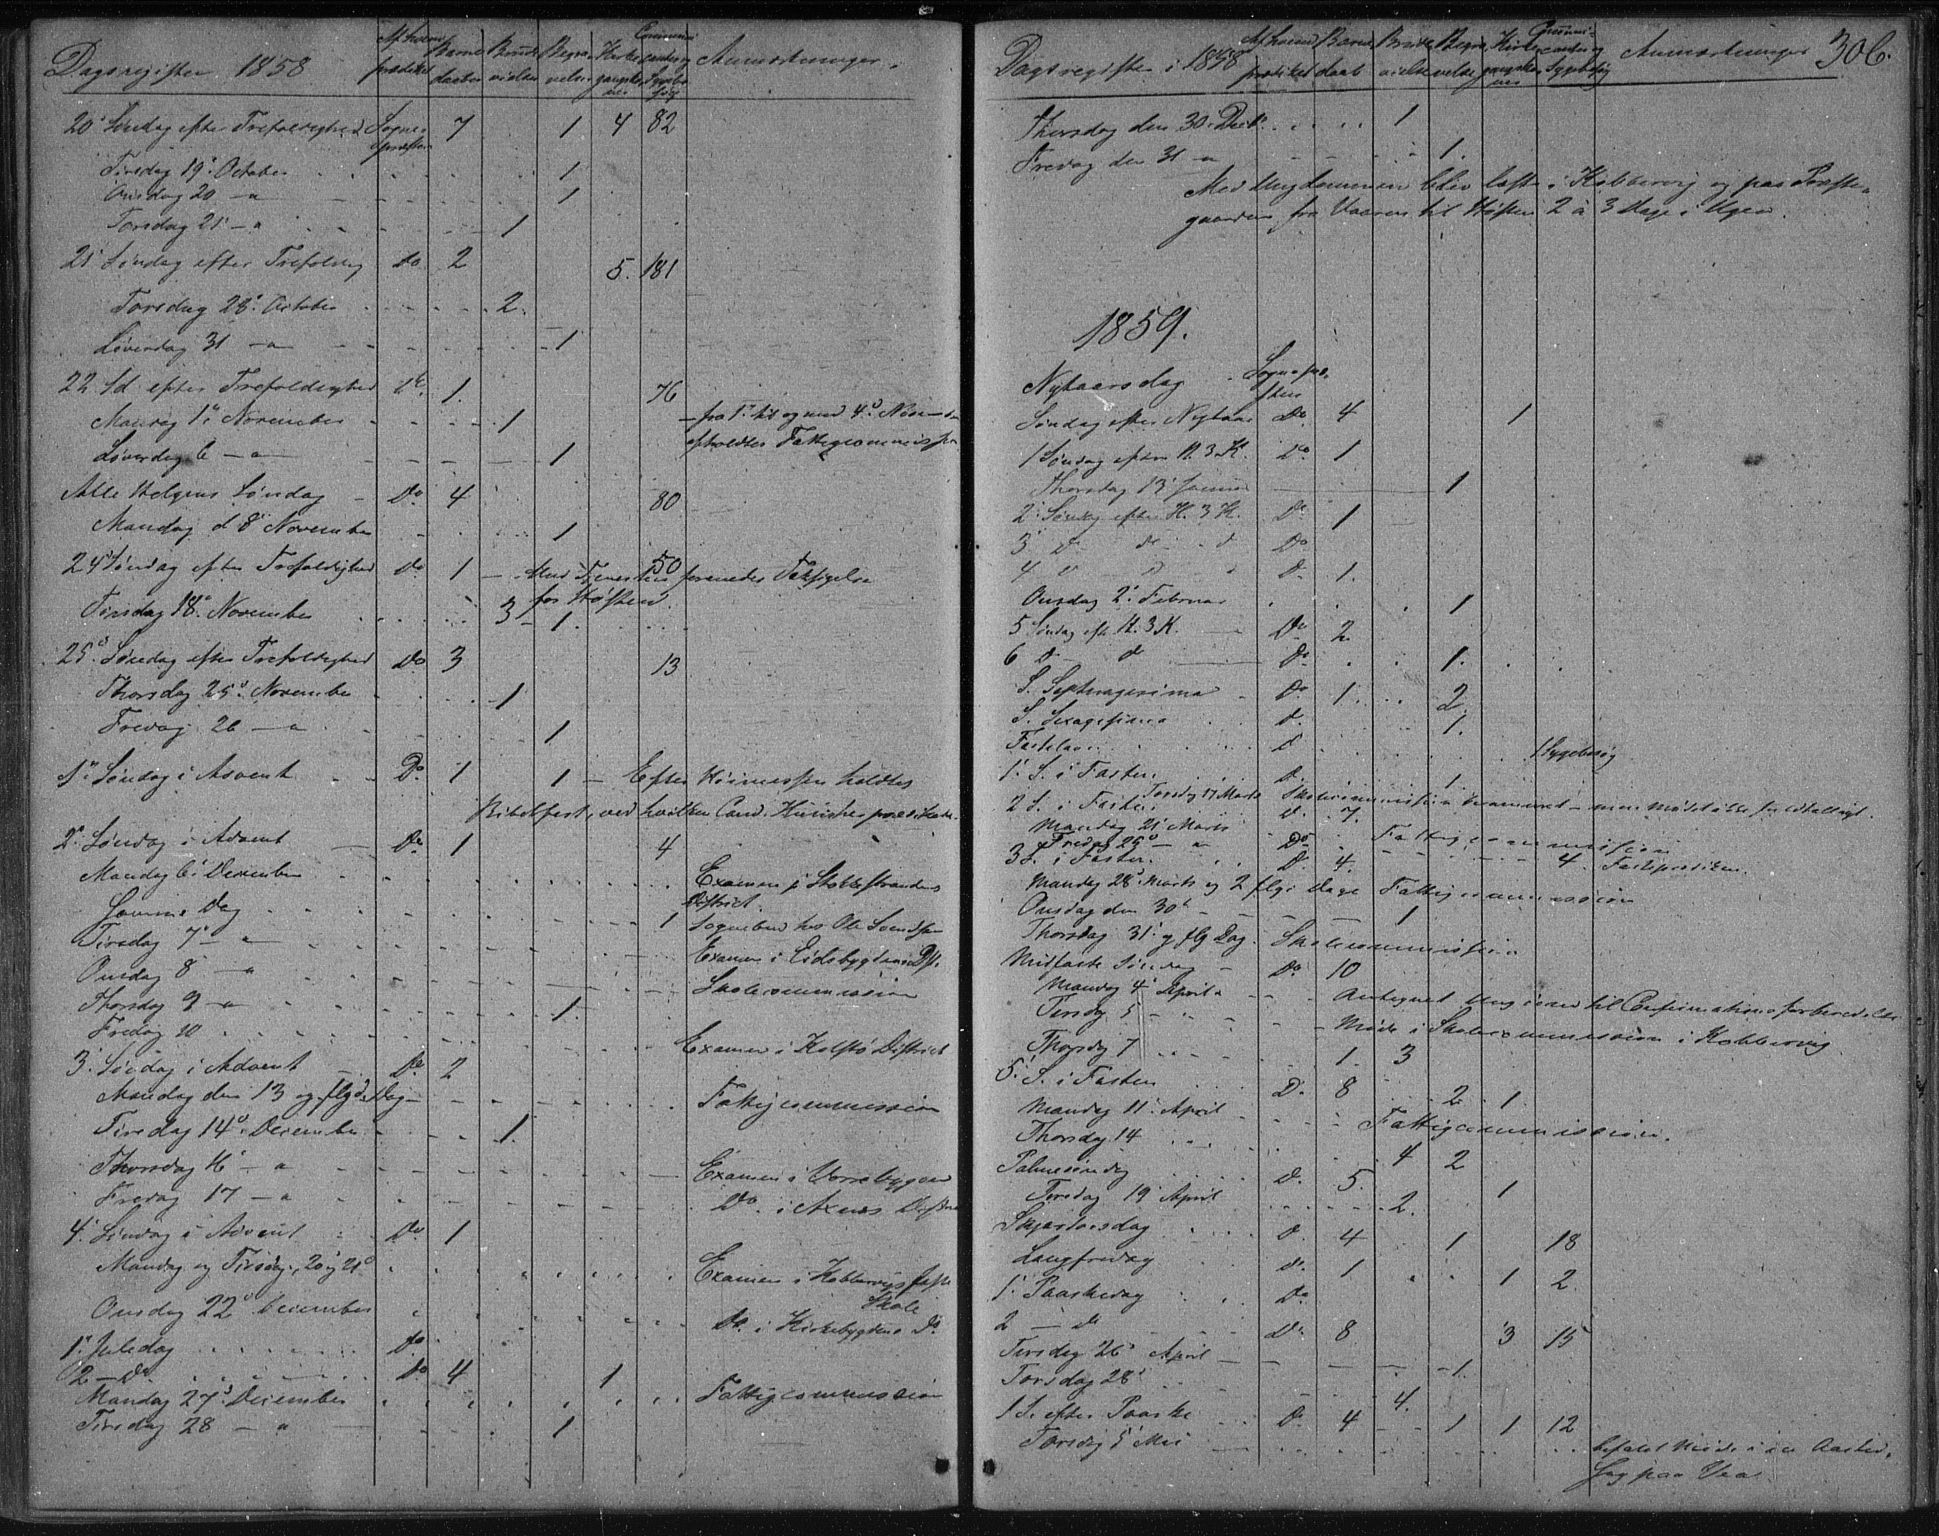 Dagsregister 1858 Af hvem prædiket Barne daaber Brude vielser Begra velser Kirke gangsko ner Communi canter og Sygebe søg Anmærkninger.
20 Søndag efter Trefoldighed Sogne præsten 7 1 4 82
Tirsdag 19 October 1
Onsdag 20 - a 1
Torsdag 21 - a 1
21 Søndag efter Trefoldig Do 2 5. 181
Torsdag 28 October 2.
Løverdag 31 - a 1
22 Sd efter Trefoldighed Do 1. 76
Mandag 1 November 1 - fra 1 til og med 4 Nov
Løverdag 6 - a 1 afholdtes Fattigcommission
Alle Helgens Søndag Do 4 80
Mandag d 8 November 1
24 Søndag efter Trefoldighed Do 1 - Med Tjenesten forenedes Takkigelse 50
for Høsten.
Tirsdag 18 November 3 - 1
25 Søndag efter Trefoldighed Do 3 13
Thorsdag 25 November 1
Fredag 26 - a 1
1 Søndag i Advent Do 1 1 - Efter Høimessen holdtes
Bibelfest, ved hvilken Cand. prædikede.
2 Søndag i Advent Do 1 4
Mandag 6 December Examen i Stokkestrandens District.
Samme Dag 1 Sognebud hos Ole Svendsen
Tirsdag 7 - a Examen i Eidsbygdens Dst.
Onsdag 8 a Skolecommission
Thorsdag 9 - a 1.
Fredag 10 Examen i Kolstø District
3. Søndag i Advent Do 2
Mandag den 13 og flgd. Dag Fattigcommission
Tirsdag 14 December 1.
Thorsdag 16 - a Examen i Vorrebygden
Fredag 17 - a Do. i District
4. Søndag i Advent Do 1
Mandag og Tirsdag, 20 og 21 Examen i Kobbervig faste Skole
Onsdag 22 December Do. i Kirkebygdens Do
1 Juledag Do
2 - Do Do 4 1
Mandag 27 December Fattigcommission
Tirsdag 28 - a 1
Dagsregister i 1858 Af hvem prædiket Barne daab Brude vielse Begra velse Kirke gangsko ner Communi canter og Sygebesøg Anmærkninger 306.
Thorsdag den 30 Decb. 1
Fredag den 31 - a 1.
Med Ungdommen blev læst i Kobbervig og paa Præste-
gaarden fra Vaaren til Høsten 2 à 3 Dage i Ugen.
1859.
Nytaarsdag Sognepræ sten
Søndag efter Nytaar Do 4 1
1 Søndag efter H. 3 K. Do 1
Thorsdag 13 Januar 1
2 Søndag efter H. 3 K. Do 1
3 d d d Do
4 d d d D. 1.
Onsdag 2 Februar 1
5 Søndag eft. H. 3 K. Do 2
6 d d Do 1.
S. Septuagesima Do 1. 2.
S. Sexagesima d. 1.
Fastelavn d 1 Sygebesøg
1. S. i Fasten. D. 1.
Torsdag 17 Marts Skolecommission
2 S. i Fasten. d. 7.
Mandag 21 Marts
Fredag 25 - a Do Fattigcommission
3 S. i Fasten. D. 4. 4. Fasteprædiken.
Mandag 28 Marts og 2 flg. Dage Fattigcommission
Onsdag den 30 1
Thorsdag 31 og flg Dag. Skolecommission
Midfaste Søndag Do 10
Mandag 4 April Antegnet Ungdom til Confirmationsforberedelse
Tirsdag 5 - Møde i Skolecommission i Kobbervig
Thorsdag 7 1. 3
5. S. i Fasten D. 8 2 1.
Mandag 11 April Fattigcommission.
Thorsdag 14 4 2
Palmesøndag D. 5. 1
Tirsdag 19 April 2.
Skjærtorsdag D. 4 1 18
Langfredag do. 1 1 2
1 Paaskedag Do
2 - d D. 8 3 15
Tirsdag 26 April 1.
Torsdag 28 4.
1 S. efter Paaske D. 4 1 1 12
Torsdag 5 Mai Møde i en Aasted-
Sag paa